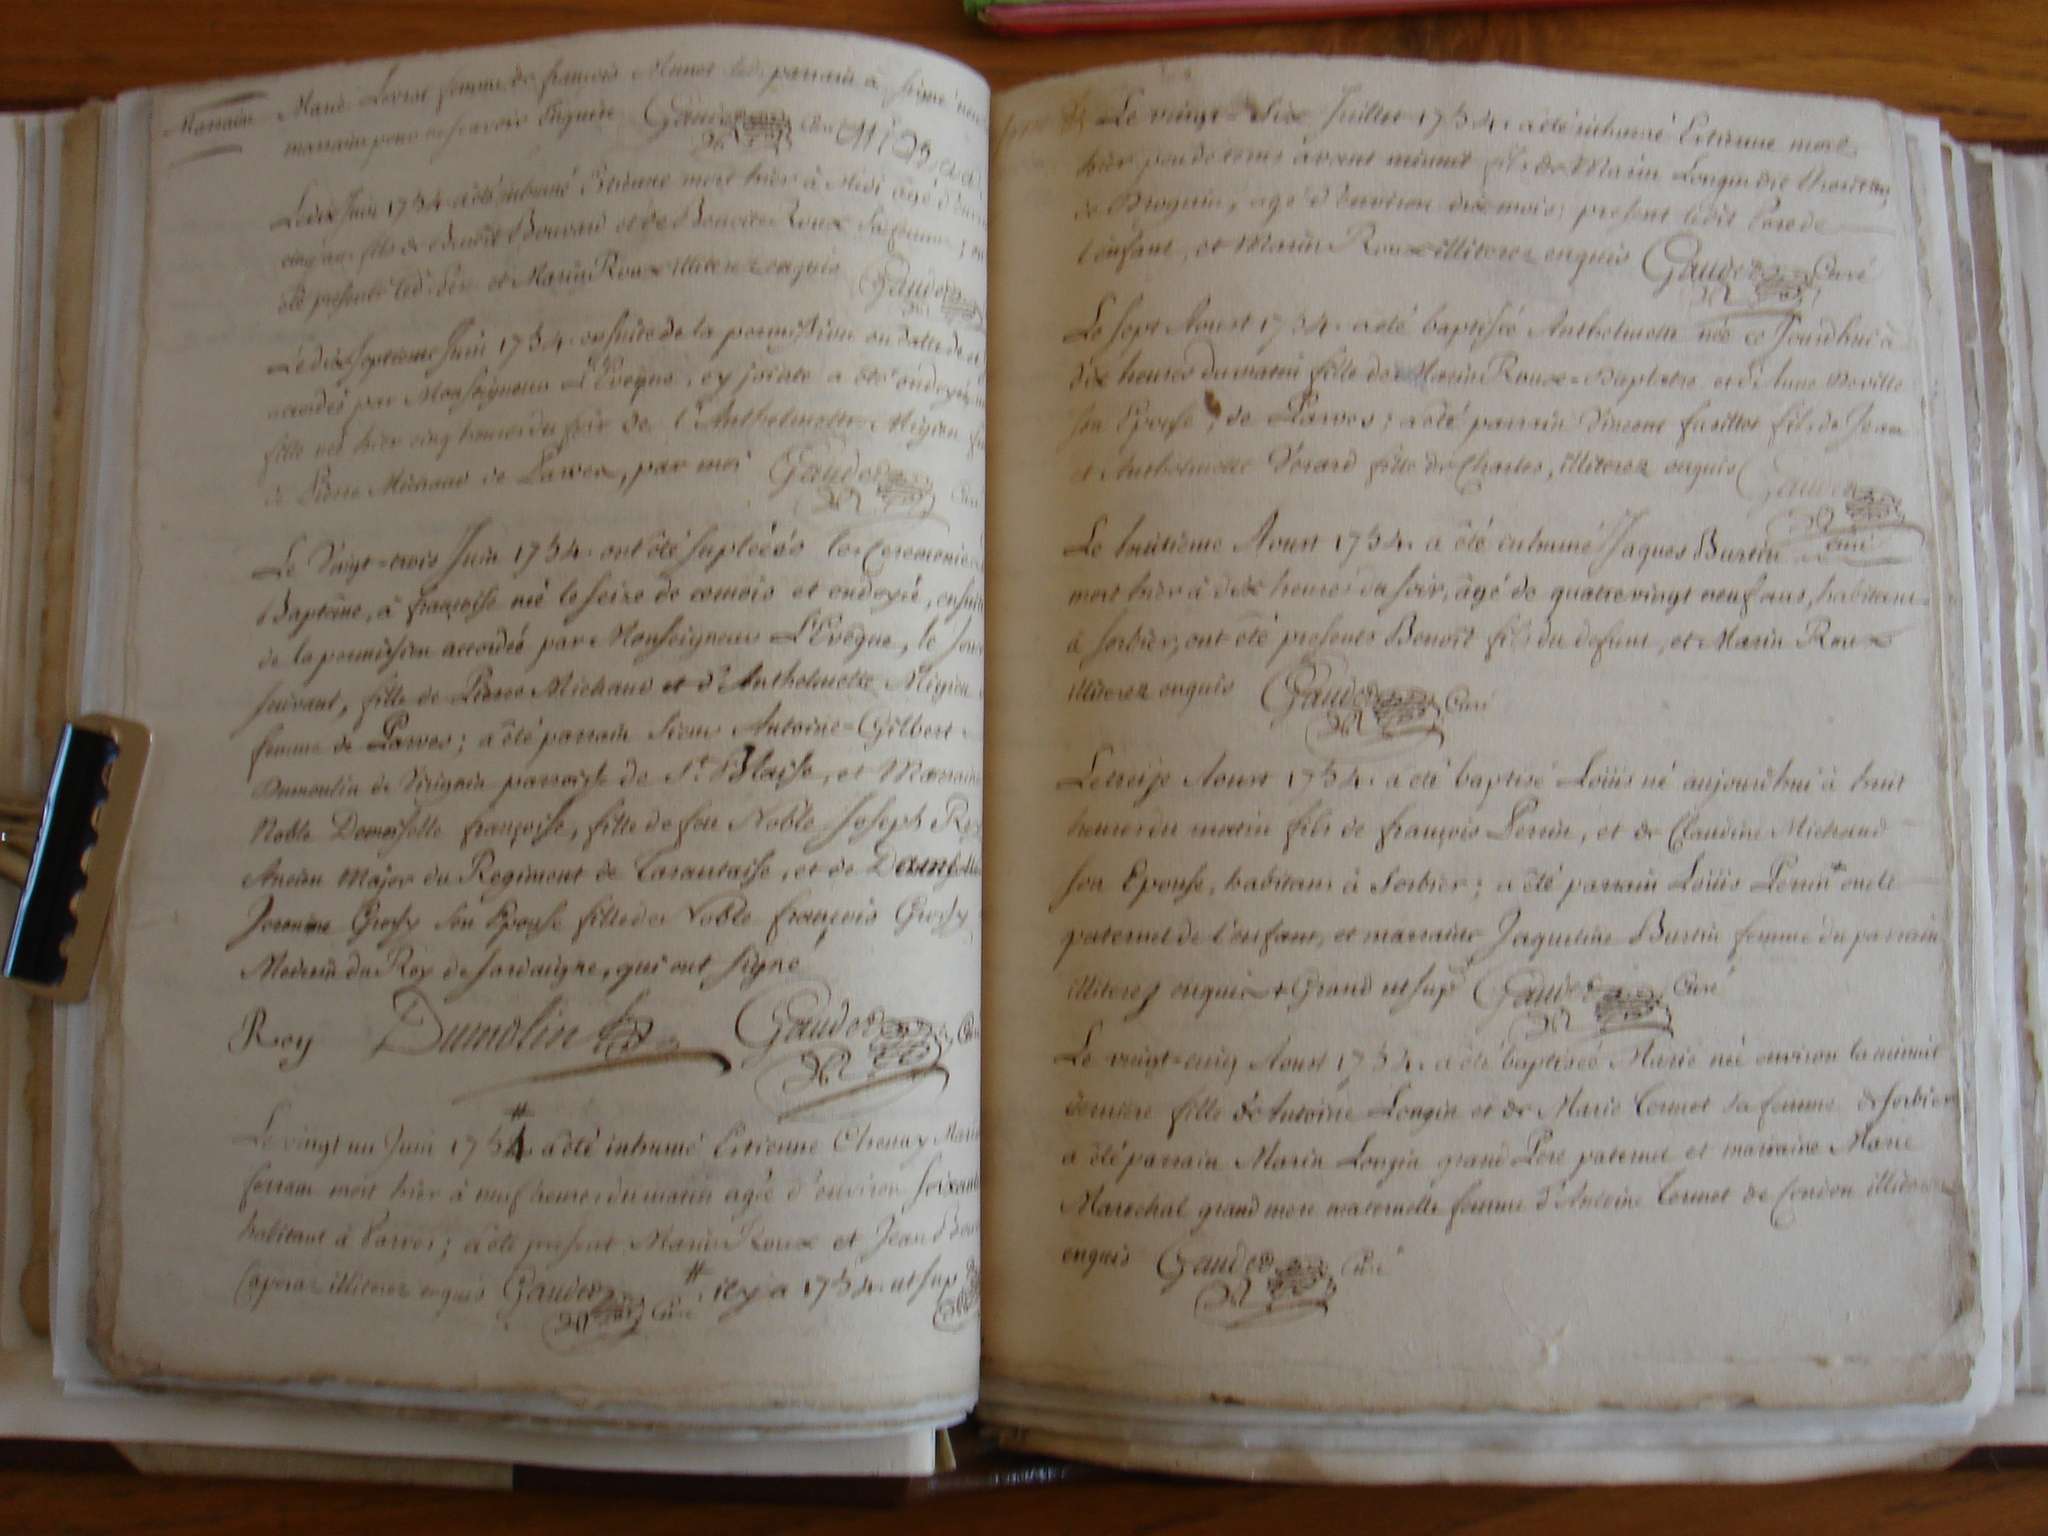 Marraine
Marie femme de françois Munet led. parrain a signé
marraine pour ne scavoir Enquise Gaudet Curé
Le dix Juin 1754 a été inhumé Etienne mort hier à Midi âgé
cinq ans fils de Benoit Bouvard et de Benoite Roux sa femme; 
été presents led. père et Marin Roux illiterez enquis Gaudet
Le dix septieme Juin 1754. ensuite de la permission en datte de
accordée par Monseigneur L'Evêque, cy jointe a été ondoyée
fille née hier cinq heures du soir de l'Anthelmette Migieu
de Pierre Michaud de Parves, par moi Gaudet Curé
Le Vingt-trois Juin 1754. ont été supleées les Ceremonies
Baptême, à françoise née le seize de ce mois et ondoyée, ensuite
de la permission accordée par Monseigneur L'Evêque, le jour
suivant, fille de Pierre Michaud et d'Anthelmette Migieu
femme de Parves; a été parrain Sieur Antoine-Gilbert
Dumoulin de Virignin parroisse de St. Blaise, et Marraine
Noble Demoiselle françoise, fille de feu Noble Joseph
Ancien Major du Regiment de Tarantaise, et de Dame
Jeronime Grossy son Epouse fille de Noble françois Grossy
Medecin du Roy de Sardaigne, qui ont signé
Roy Dumolin Gaudet Curé
Le vingt un Juin 1754 # a été inhumé Etienne Chenay
mort hier à neuf heures du matin agé d'environ soixante
habitant à Parves; a été présent Marin Roux et Jean
illiterez enquis Gaudet Curé # il y a 1754. ut sup
Le vingt-six Juillet 1754. a été inhumé Etienne mort
hier peu de tems avant minuit fils de Marin Longin dit
de, agé d'environ dix mois; présent ledit Pere de
l'enfant, et Marin Roux illiterez enquis Gaudet Curé
Le sept Aoust 1754. a été baptisée Anthelmette née ce Jourd'hui à
dix heures du matin fille de Marin Roux-Baptistre et d'Anne
son Epouse, de Parves; a été parrain Vincent fils de Jean
et Anthelmette Verard fille de Charles, illiterez enquis Gaudet
Curé
Le huitieme Aoust 1754. a été inhumé Jaques Burtin
mort hier à dix heures du soir, âgé de quatre vingt neuf ans, habitant
à Sorbier, ont été presents Benoît fils du defunt, et Marin Roux
illiterez enquis Gaudet Curé
Le treize Aoust 1754. a été baptisé Loüis né aujourd'hui à huit
heures du matin fils de françois Perrin, et de Claudine Michaud
son Epouse, habitans à Sorbier; a été parrain Loüis Perrin + oncle
paternel de l'enfant, et marraine Jaqueline Burtin femme du parrain
illiterez enquis + Grand ut sup. Gaudet Curé
Le vingt-cinq Aoust 1754. a été baptisée Marie née environ la minuit
derniere fille de Antoine Longin et de Marie Cornet sa femme de Sorbier
a été parrain Marin Longin grand Pere paternel et marraine Marie
Marechal grand mere maternelle femme d'Antoine Cornet de illiterez
enquis Gaudet Curé